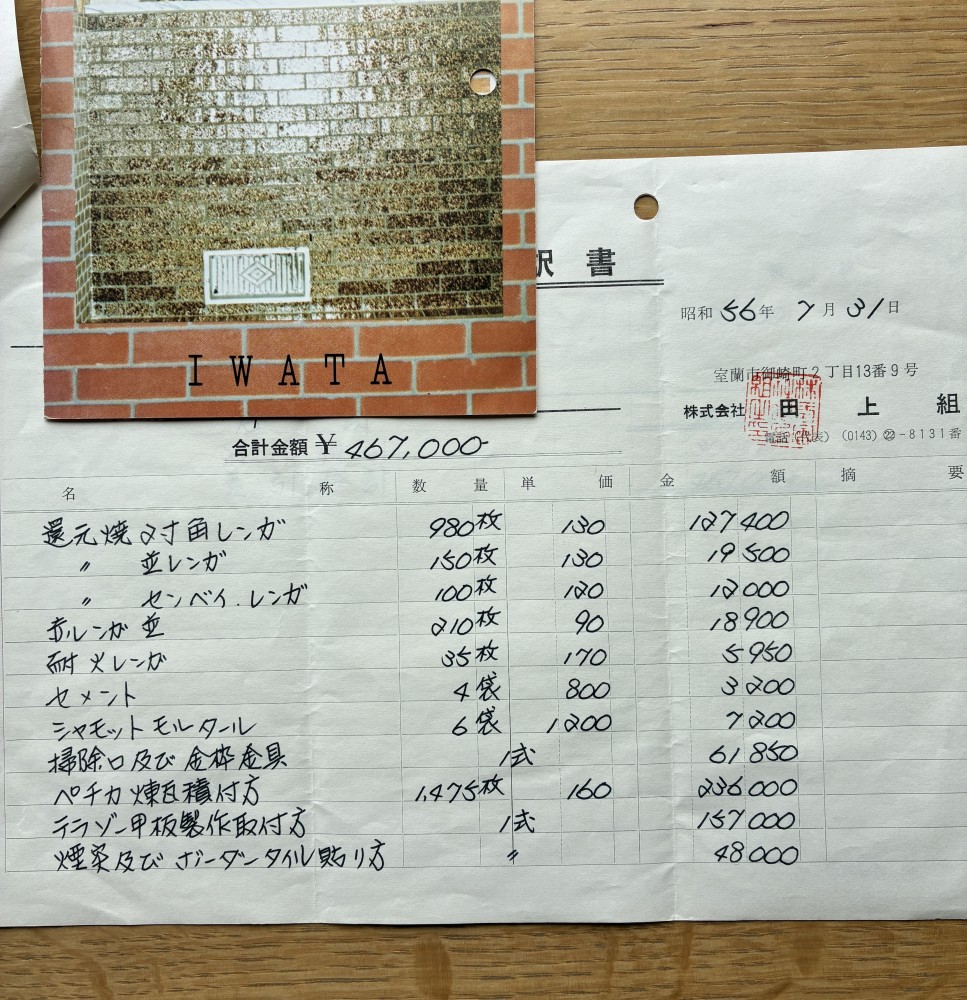 IWATA
訳書
昭和 56年 7月 31日
室蘭市御崎町2丁目13番9号
株式会社 田上組
電話(代表)(0143)㉒-8131番
合計金額 ¥ 467,000-
名称 数量 単価 金額 摘要
還元焼2寸角レンガ 980枚 130 127400
〃 並レンガ 150枚 130 19500
〃 センベイ.レンガ 100枚 120 12000
赤レンガ並 210枚 90 18900
耐火レンガ 35枚 170 5950
セメント 4袋 800 3200
シャモットモルタール 6袋 1200 7200
掃除口及び金枠金具 1式 61850
ペチカ煉瓦積付方 1,475枚 160 236000
テラゾー甲板製作取付方 1式 157000
及びボーダータイル貼り方 〃 48000